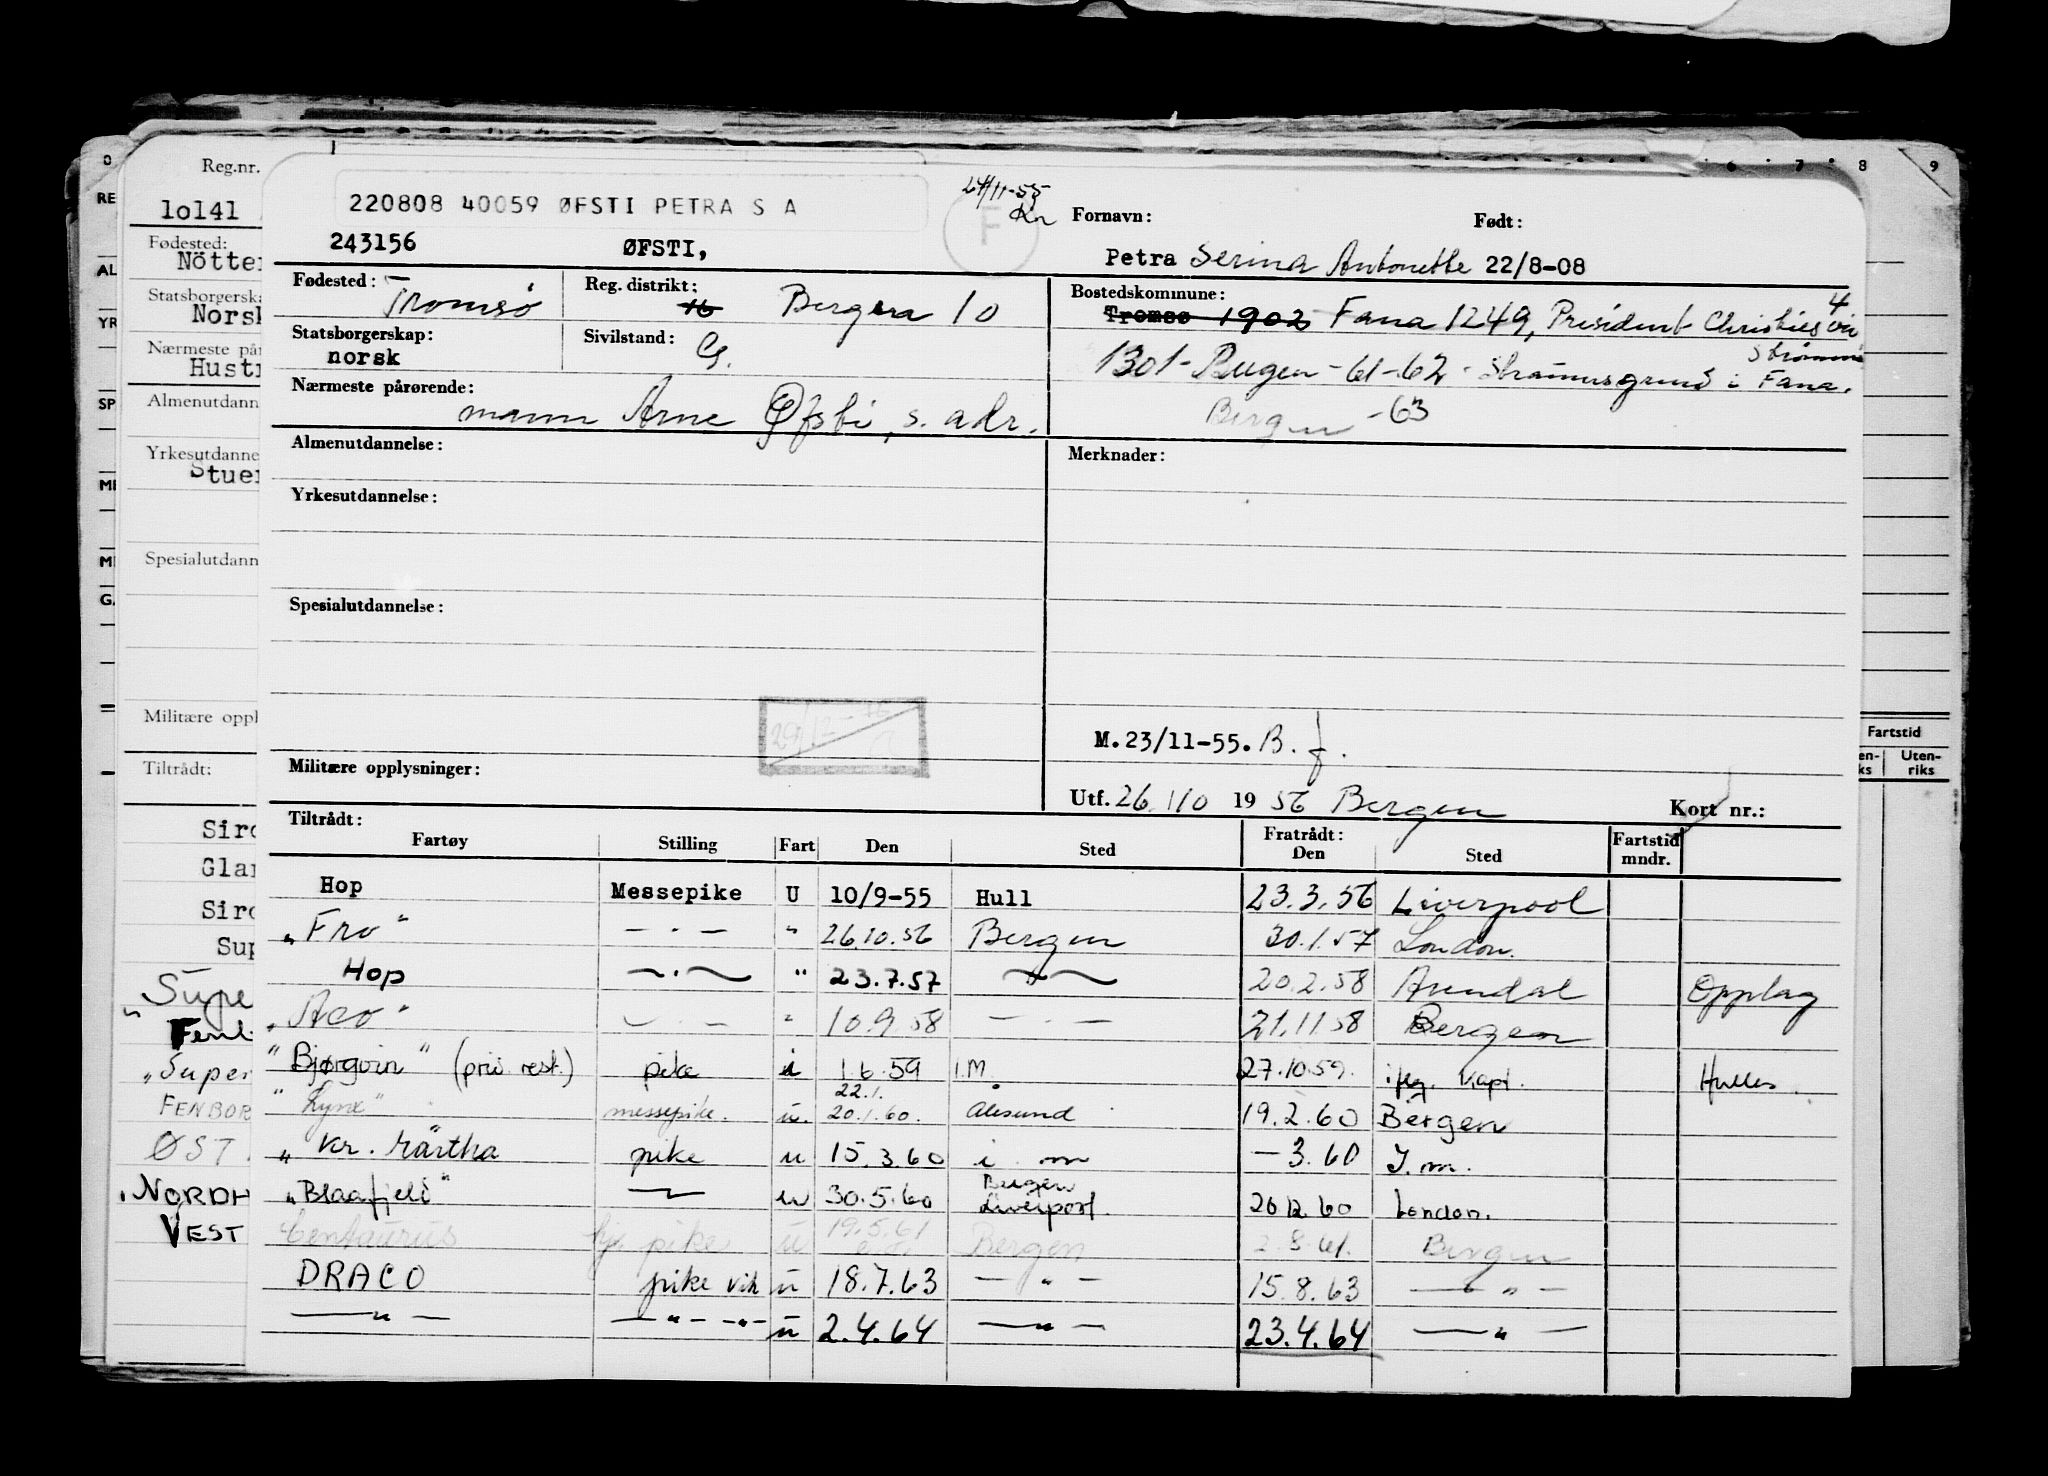 Reg.nr.
10141
Fødested:
Nötter
Statsborgerska
Norsk
Nærmeste pår
Hustr
Almenutdann
Yrkesutdanne
Stuer
Spesialutdann
Militære oppl
Tiltrådt:
Siro
Glar
Siro
Sup
Supe
Fenb
"Super
FENBOR
ØST
NORDH
VEST
220808 40059 ØFSTI PETRA S A
24/11-55
Kn
F
243156 ØFSTI,
Fornavn: Født:
Petra Serina Antonette 22/8-08
Fødested: Tromsø
Reg. distrikt: 16 Bergen 10
Bostedskommune:
Tromsø 1902 Fana 1249, President Christies vei 4
Statsborgerskap: norsk
Sivilstand: G.
1301-Bergen-61-62 - Straumsgrend i Fana.
Bergen -63
Nærmeste pårørende:
mann Arne Øfsti, s. adr.
Almenutdannelse:
Merknader:
Yrkesutdannelse:
Spesialutdannelse:
M.23/11-55. B. f.
Militære opplysninger:
Utf. 26/10 1956 Bergen Kort nr.:
Tiltrådt: Fratrådt:
Fartøy Stilling Fart Den Sted Den Sted Fartstid mndr.
Hop Messepike U 10/9-55 Hull 23.3.56 Liverpool
"Fro" — . — " 26.10.56 Bergen 30.1.57 London.
Hop — . — " 23.7.57 — " — 20.2.58 Arendal Opplag
"Aco" — . — " 10.9.58 — . — 21.11.58 Bergen
"Bjørgvin" (priv. rest.) pike i 1.6.59 I.M. 27.10.59. iflg. kapt. Hulles.
22.1.
"Lynx" messepike. u. 20.1.60. Ålesund 19.2.60 Bergen
"Kr. Märtha pike u 15.3.60 i m — 3.60 I.m.
Bergen
"Blaafjell" — u 30.5.60 Liverpool. 20.12.60 London.
Centaurus pike u 19.5.61 Bergen 2.8.61. Bergen
DRACO pike vik u 18.7.63 — " — 15.8.63 — " —
— " — — " — — " — u 2.4.64 — " — 23.4.64 — " —
6 7 8 9
Fartstid
Uten-
riks